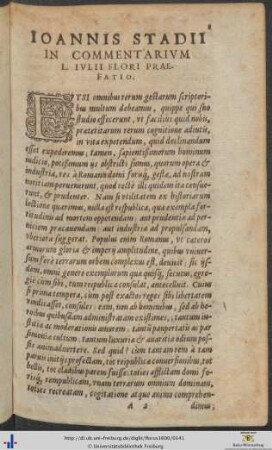 IOANNIS STADII
IN COMMENTARIVM
L. IVLII FLORI PRAE-
FATIO.
ETSI omnibus rerum gestarum scriptori-
bus multum debeamus, quippe qui suo
studio effecerunt, vt facilius quid nobis,
praeteritarum rerum cognitione adiutis,
in vita expetendum, quid declinandum
esset expenderemus; tamen, sapientissimorum hominum
iudicio, potissimum iis obstricti sumus, quorum opera &
industria, res à Romanis domi forisq́; gestae, ad nostram
notitiam peruenerunt, idque rectè illi quidem ita censue-
runt, & prudenter. Nam si vtilitatem ex historiarum
lectione quaerimus, nulla est respublica, quae exempla for-
titudinis ad mortem oppetendam: aut prudentiae ad per-
niciem praecauendam: aut industriae ad propulsandam,
vberiora suggerat. Populus enim Romanus, vt caeteros
armorum gloria & imperij amplitudine, quibus vniuer-
sum ferè terrarum orbem complexus est, deuicit: sic ijs-
dem, omni genere exemplorum quae quisq́;
gie cùm sibi, tum reipublicae consulat, antecelluit. Cùm
si prima tempora, cùm post exactos reges sibi libertatem
vendicasset, consules: eam, non ab hominibus, sed ab he-
roibus quibusdam administratam existimes, tantum iu-
stitiae ac moderationis amorem: tantum
simoniae cultum: tantum luxuriae & auaritiae odium
animaduertere. Sed quid? cùm tantam rem à tam
paruis initijs profectam, tot reipublicae conuersionibus, tot
bellis, tot cladibus parem fuisse: toties afflictam domi fo-
risq́; rempublicam, vnam terrarum omnium dominam,
toties recreatam, cogitatione atque animo comprehen-
A 2 dimus;
http://dl.ub.uni-freiburg.de/diglit/florus1600/0141
© Universitätsbibliothek Freiburg